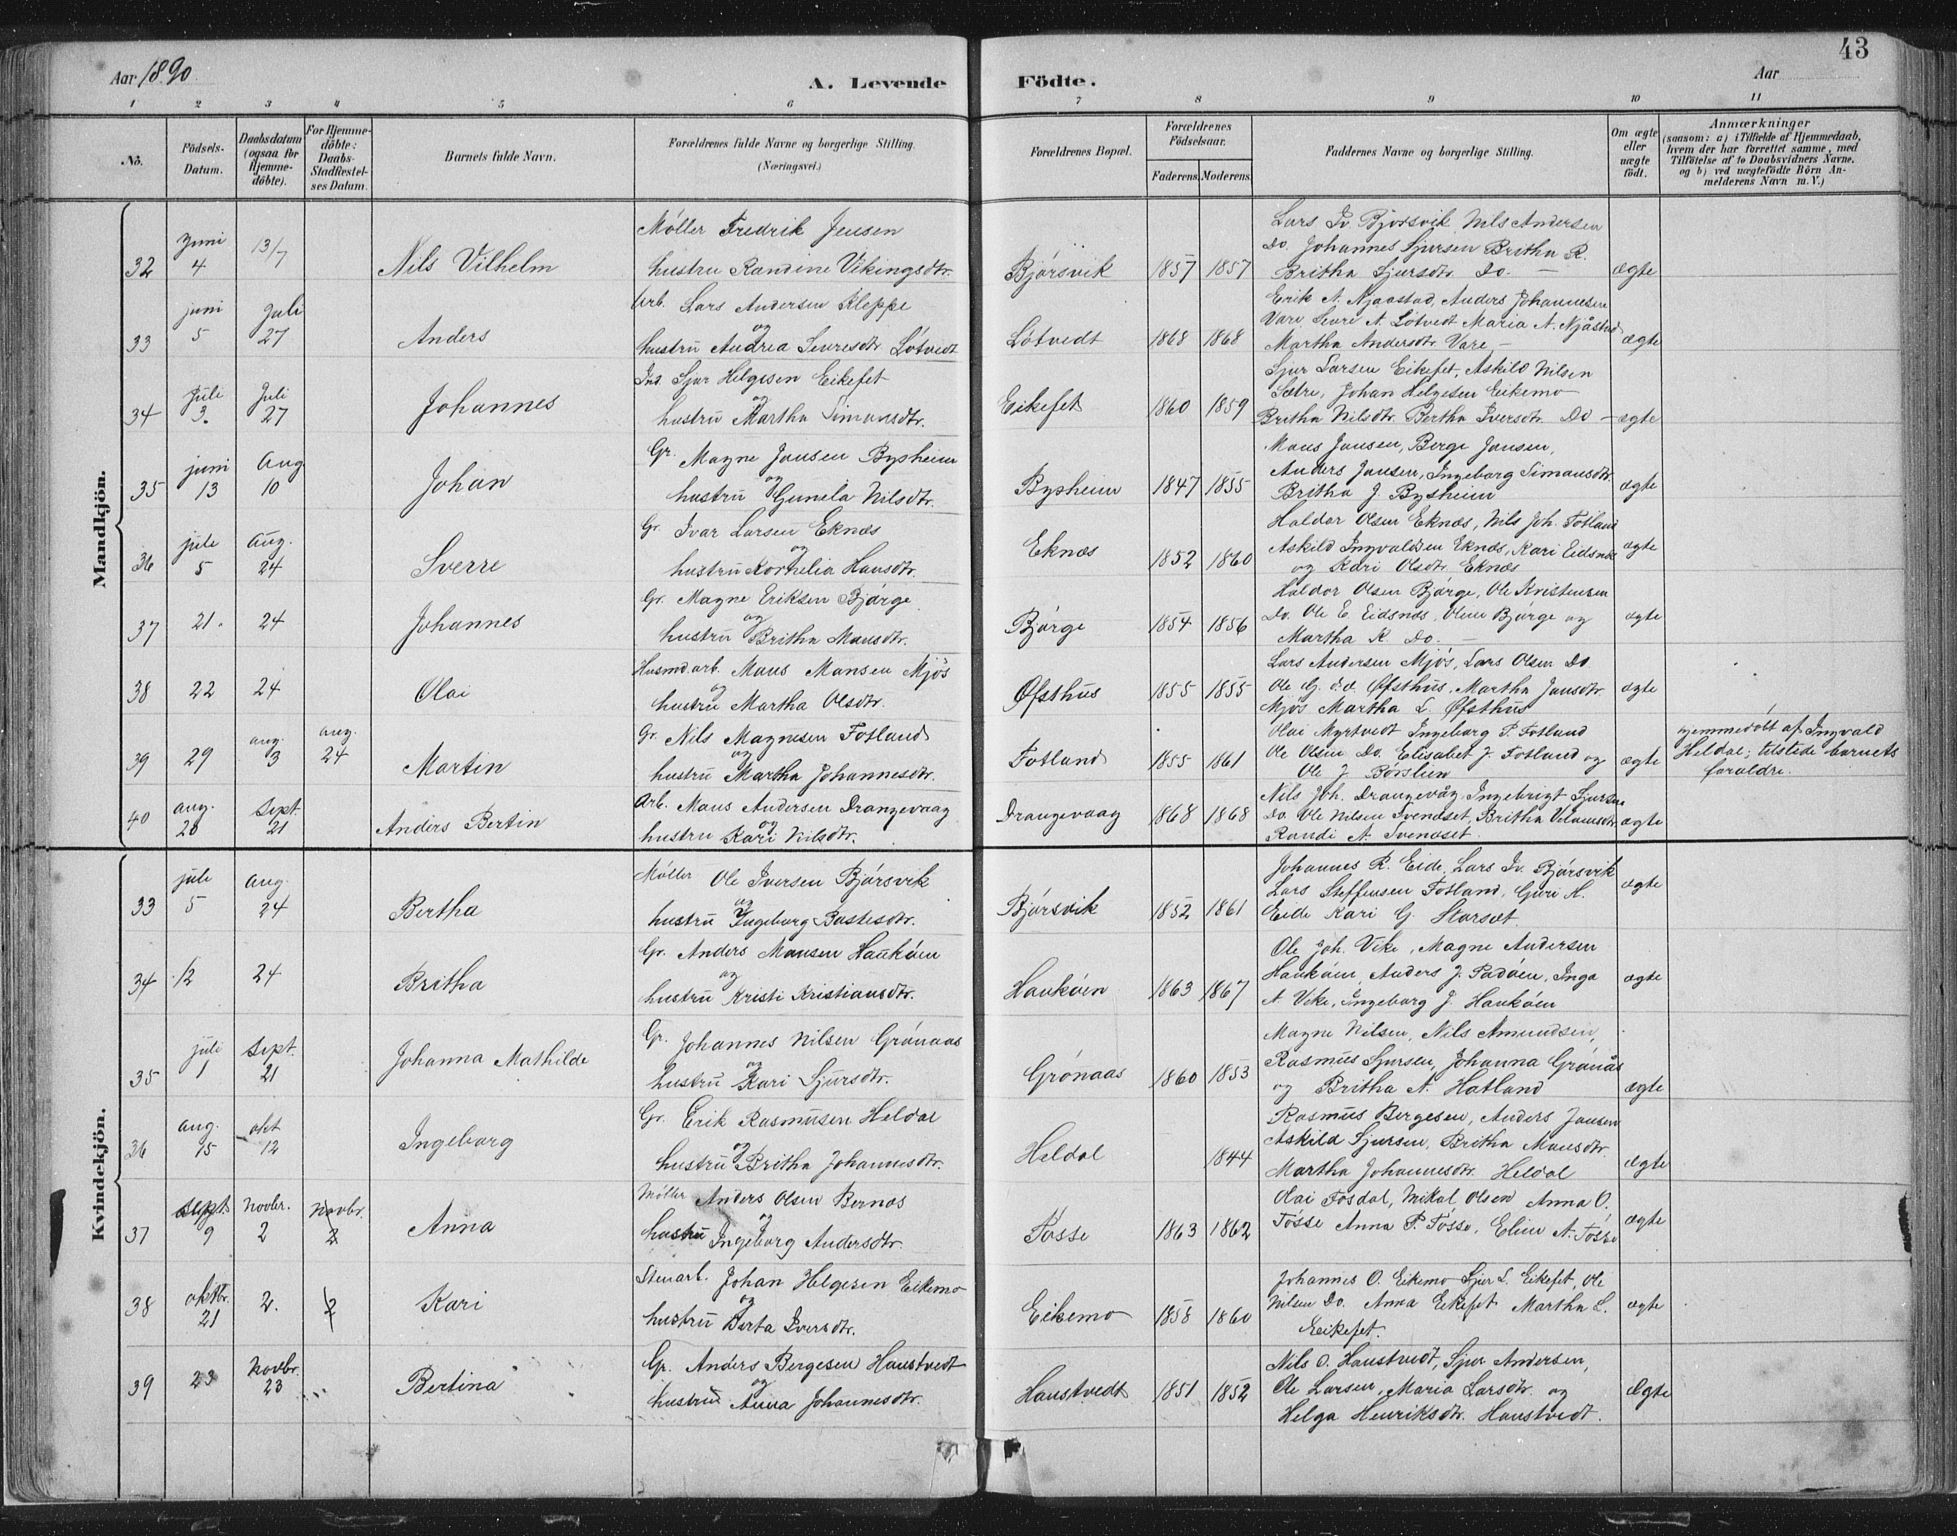 43
Aar 1890.
A. Levende Födte.
Aar
1 2 3 4 5 6 7 8 9 10 11
No.
Födsels-Datum.
Daabsdatum (ogsaa for Hjemme-döbte).
For Hjemme-döbte: Daabs-Stadfæstel-ses Datum.
Barnets fulde Navn.
Forældrenes fulde Navne og borgerlige Stilling. (Næringsvei.)
Forældrenes Bopæl.
Forældrenes Födselsaar.
Faderens. Moderens.
Faddernes Navne og borgerlige Stilling.
Om ægte eller uægte födt.
Anmærkninger
(saasom: a) i Tilfælde af Hjemmedaab, hvem der har forrettet samme, med Tilföielse af to Daabsvidners Navne. og b) ved uægtefödte Börn Anmelderens Navn m. V.)
Mandkjön.
32 Juni 4 13/7 Nils Vilhelm
Møller Fredrik Jensen
hustru Randine Vikingsdtr.
Bjørsvik 1857 1857
Lars Iv. Bjørsvik Nils Andersen
Do. Johannes Sjursen Britha R.
Britha Sjursdtr. Do. —
ægte
33 juni 5 Juli 27 Anders
Arb. Lars Andersen Kleppe
og
hustru Andrea Sevresdtr Løtvedt
Løtvedt 1868 1868
Erik A. Njaastad, Anders Johannesen
Vare Sevre A. Løtvedt Maria A. Njåstad
Martha Andersdtr Vare —
ægte
34 Juli 3. Juli 27 Johannes
Ins Sjur Helgesen Eikefet
og
hustru Martha Simonsdtr.
Eikefet 1860 1859
Sjur Larsen Eikefet, Askild Nilsen
Sætre, Johan Helgesen Eikemo
Britha Nilsdtr. Bertha Iversdtr. Do —
ægte
35 juni 13 Aug 10 Johan
Gr. Magne Jansen Bysheim
og
hustru Gunela Nilsdtr.
Bysheim 1847 1855
Mons Jansen, Berge Jansen,
Anders Jansen, Ingeborg Simonsdtr.
Britha J. Bysheim
ægte
36 jule 5 Aug. 24 Sverre
Gr. Ivar Larsen Eknæs
og
hustru Kornelia Hansdtr.
Eknæs 1852 1860
Haldor Olsen Eknæs, Nils Joh. Fotland
Askild Ingvaldsen Eknæs, Kari Eidsnes
og Kari Olsdtr. Eknæs
ægte
37 21. 24 Johannes
Gr. Magne Eriksen Bjørge
og
hustru Britha Monsdtr.
Bjørge 1854 1856
Haldor Olsen Bjørge, Ole Kristensen
Do. Ole E. Eidsnes, Oline Bjørge og
Martha K. Do. —
ægte
38 22 24 Olai
Husmd arb. Mons Monsen Mjøs
og
hustru Martha Olsdtr.
Øfsthus 1855 1855
Lars Andersen Mjøs, Lars Olsen Do
Ole G. do. Øfsthus, Martha Jansdtr.
Mjøs Martha L. Øfsthus
ægte
39 29 aug. 3 aug. 24 Martin
Gr. Nils Magnesen Fotland
og
hustru Martha Johannesdtr.
Fotland 1855 1861
Olai Myrtvedt Ingeborg P. Fotland
Ole Olsen Do. Elisabet J. Fotland og
Ole J. Børslien
ægte
hjemmedøbt af Ingvald
Heldal; tilstede barnets
forældre.
40 aug. 20 Sept. 21 Anders Bertin
Arb. Mons Andersen Drangevaag
og
hustru Kari Nilsdtr.
Drangevaag 1868 1868
Nils Joh. Drangevåg Ingebrigt Sjursen
Do. Ole Nilsen Tvendset, Britha
Randi A. Tvendset.
ægte
Kvindekjön.
33 jule 5 aug. 24 Bertha
Møller Ole Iversen Bjørsvik
og
hustru Ingeborg Bastesdtr.
Bjørsvik 1852 1861
Johannes R. Eide, Lars Iv. Bjørsvik
Lars Steffensen Fotland, Guri H.
Eide Kari G. Storset
ægte
34 12 24 Britha
Gr. Anders Monsen Haukøen
og
hustru Kristi Kristiansdtr.
Haukøen 1863 1867
Ole Joh. Veke, Magne Andersen
Haukøen, Anders J. Padøen, Inga
A Veke, Ingeborg J. Haukøen
ægte
35 juli 1 Sept. 21 Johanna Mathilde
Gr. Johannes Nilsen Grønaas
og
hustru Kari Sjursdtr.
Grønaas 1860 1853
Magne Nilsen, Nils Amundsen,
Rasmus Sjursen, Johanna Grønås
og Britha A. Hatland
ægte
36 aug. 15 okt 12 Ingeborg
Gr. Erik Rasmusen Heldal
og
hustru Britha Johannesdtr.
Heldal 1844
Rasmus Bergesen, Anders Jansen
Askild Sjursen, Britha Monsdtr.
Martha Johannesdtr. Heldal
ægte
37 Sept. 9 Novbr. 2 Novbr. 2 Anna
Møller Anders Olsen Bernæs
og
hustru Ingeborg Andersdtr.
Tøsse 1863 1862
Olai Tosdal, Mikal Olsen Anna O.
Tøsse Anna P. Tøsse, Eline A. Tøsse
ægte
38 oktbr. 21 2. 2 Kari
Stenarb. Johan Helgesen Eikemo
og
hustru Berta Iversdtr.
Eikemo 1858 1860
Johannes O. Eikemo Sjur L. Eikefet, Ole
Nilsen Do. Anna Eikefet Martha L.
Eikefet.
ægte
39 23 Novbr. 23 Bertina
Gr. Anders Bergesen Haustvedt
og
hustru Anna Johannesdtr.
Haustvedt 1851 1852
Nils O. Haustvedt, Sjur Andersen,
Ole Larsen, Maria Larsdtr. og
Helga Henriksdtr. Haustvedt.
Ægte